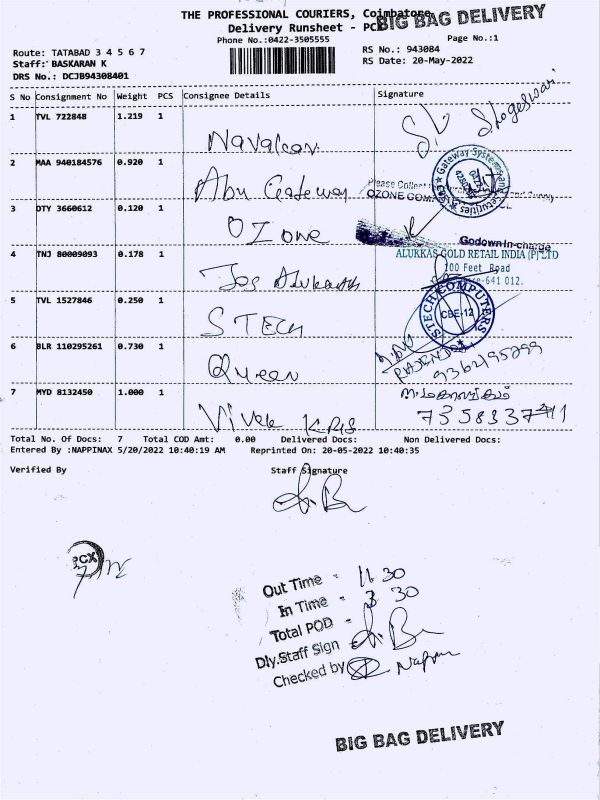 THE PROFESSIONAL COURIERS, Coimbatore
BIG BAG DELIVERY
Delivery Runsheet - PCX
Phone No.:0422-3505555
Page No.:1
Route: TATABAD 3 4 5 6 7
RS No.: 943084
Staff: BASKARAN K
RS Date: 20-May-2022
DRS No.: DCJB94308401
S No Consignment No Weight PCS Consignee Details Signature
1 TVL 722848 1.219 1 Navalcon
2 MAA 940184576 0.920 1 Abu Gateway
Gateway Systems and Securities
3 DTY 3660612 0.120 1 Ozone
Please Collect
OZONE COM
Godown In-charge
4 TNJ 80009093 0.178 1 Jos Alukkas
ALUKKAS GOLD RETAIL INDIA (P) LTD
100 Feet Road
641 012.
5 TVL 1527846 0.250 1 STECH
STECH COMPUTERS
CBE-12
6 BLR 110295261 0.730 1 Queen
9362195299
7 MYD 8132450 1.000 1 Vivek KRIS
Total No. Of Docs: 7 Total COD Amt: 0.00 Delivered Docs: Non Delivered Docs:
Entered By :NAPPINAX 5/20/2022 10:40:19 AM Reprinted On: 20-05-2022 10:40:35
Verified By Staff Signature
PCX
Out Time - 11 30
In Time - 3 30
Total POD -
Dly.Staff Sign
Checked by
BIG BAG DELIVERY